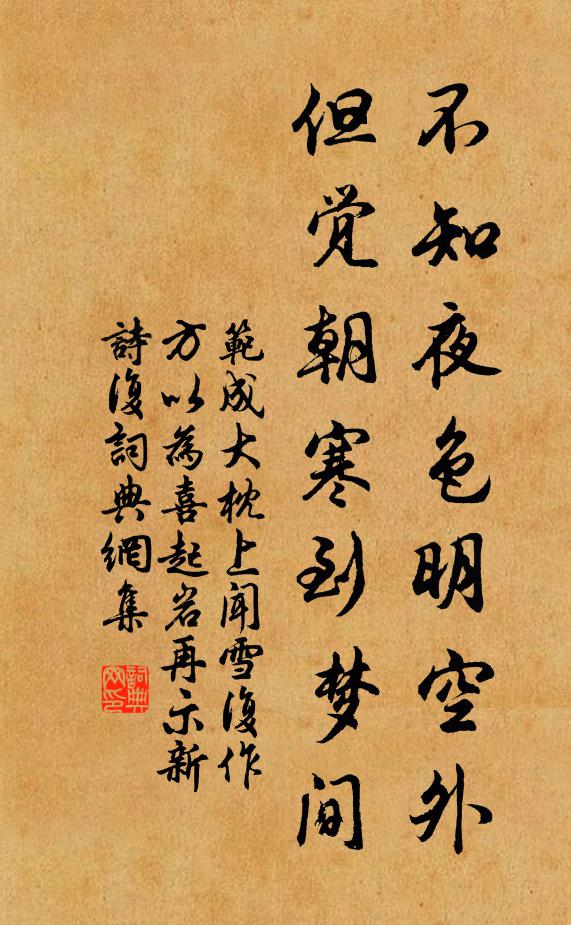 不知夜色明空外
但觉朝寒到梦间
範成大枕上闻雪復作
方以為喜起岩再示新
詩復詞典網集
詞典网印